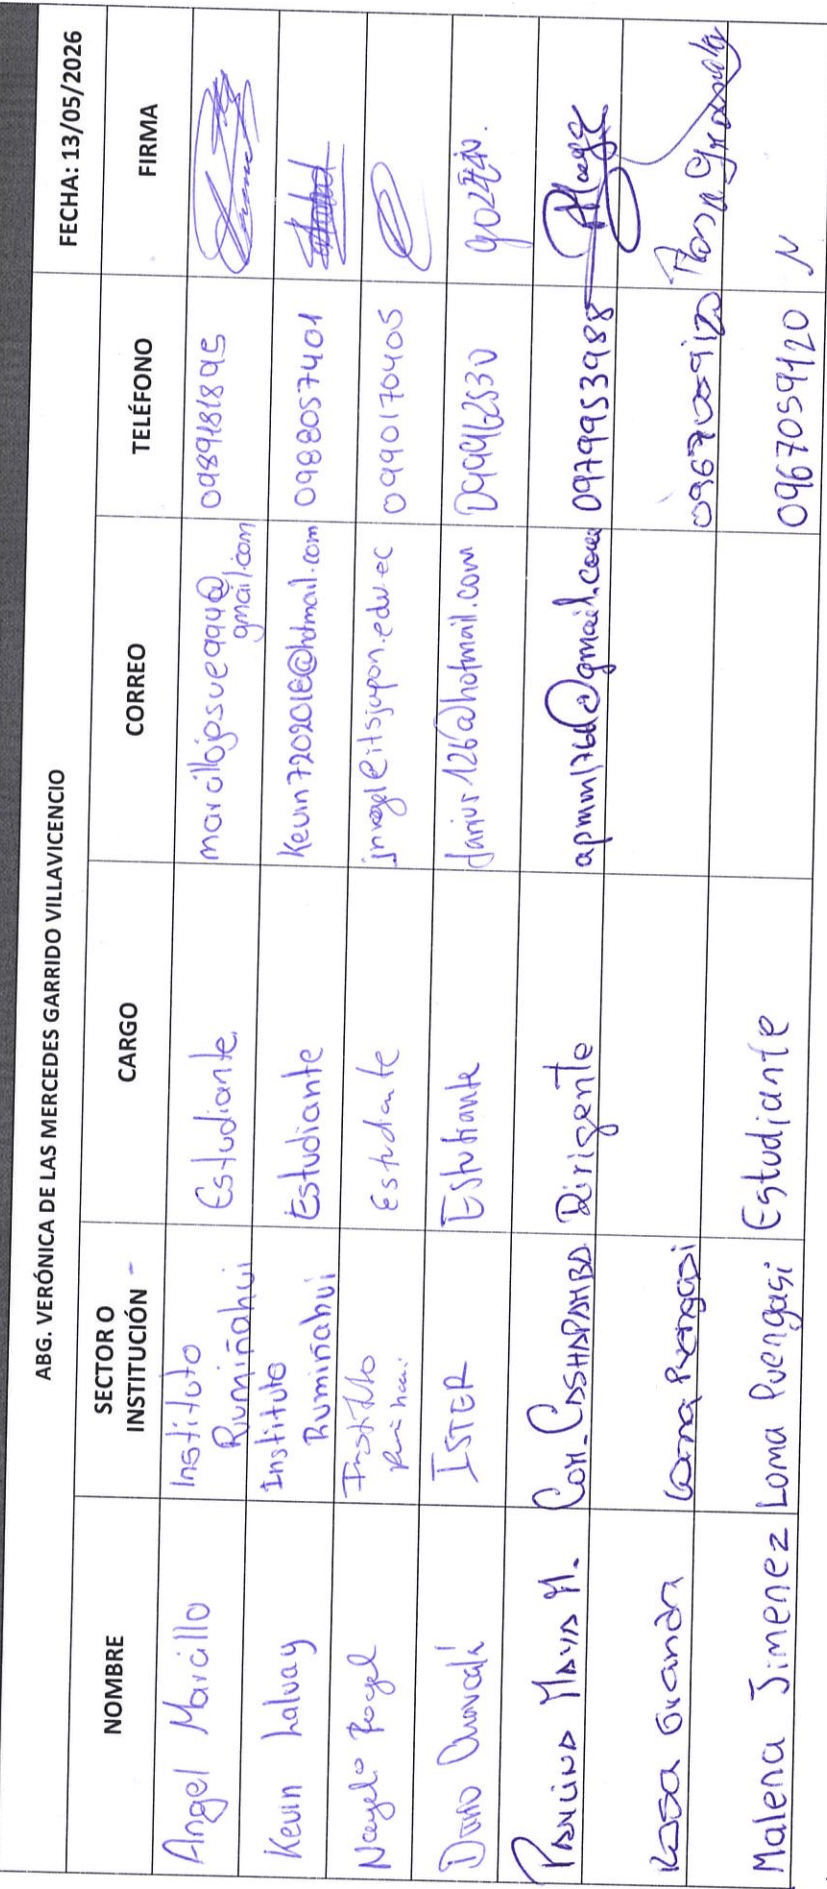 ABG. VERÓNICA DE LAS MERCEDES GARRIDO VILLAVICENCIO FECHA: 13/05/2026
NOMBRE SECTOR O INSTITUCIÓN CARGO CORREO TELÉFONO FIRMA
Angel Marcillo Instituto Rumiñahui Estudiante marcillojosue994@gmail.com 0989181895
Kevin Lalvay Instituto Rumiñahui Estudiante Kevin7202018@hotmail.com 0988057401
Nayeli Rogel Instituto Estudiante 0990170405
Dario ISTER Estudiante darius126@hotmail.com 0999462530
Maya M. Com. CASHAPAMBA Dirigente apmm1766@gmail.com 0979953988
Rosa Guanda Loma Puengasi Rosa
Malena Jimenez Loma Puengasi Estudiante 0967059120 N